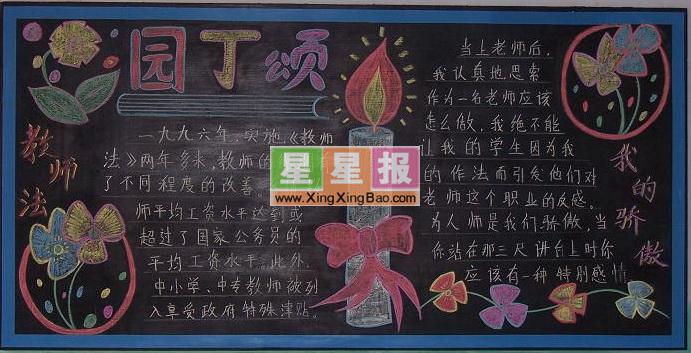 园丁颂
教师法
一九九六年,实施《教师
法》两年多来,教师的
了不同程度的改善
师平均工资水平达到或
超过了国家公务员的
平均工资水平。此外,
中小学、中专教师被列
入享受政府特殊津贴。
星星报
www.XingXingBao.com
当上老师后,
我认真地思索
作为一名老师应该
怎么做,我绝不能
让我的学生因为我
的作法而引发他们对
老师这个职业的反感。
为人师是我们骄傲,当
你站在那三尺讲台上时你
应该有一种特别感情
我的骄傲